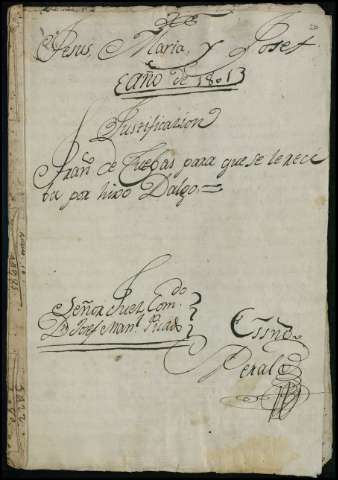 Jesus, Maria, y Josef
Año de 1813
Justificacion
Fran.co de Yllegas para que se le reci
ba por hixo Dalgo.=
Señor Juez Com.do
D. Josef Man.l
Essno
Perales